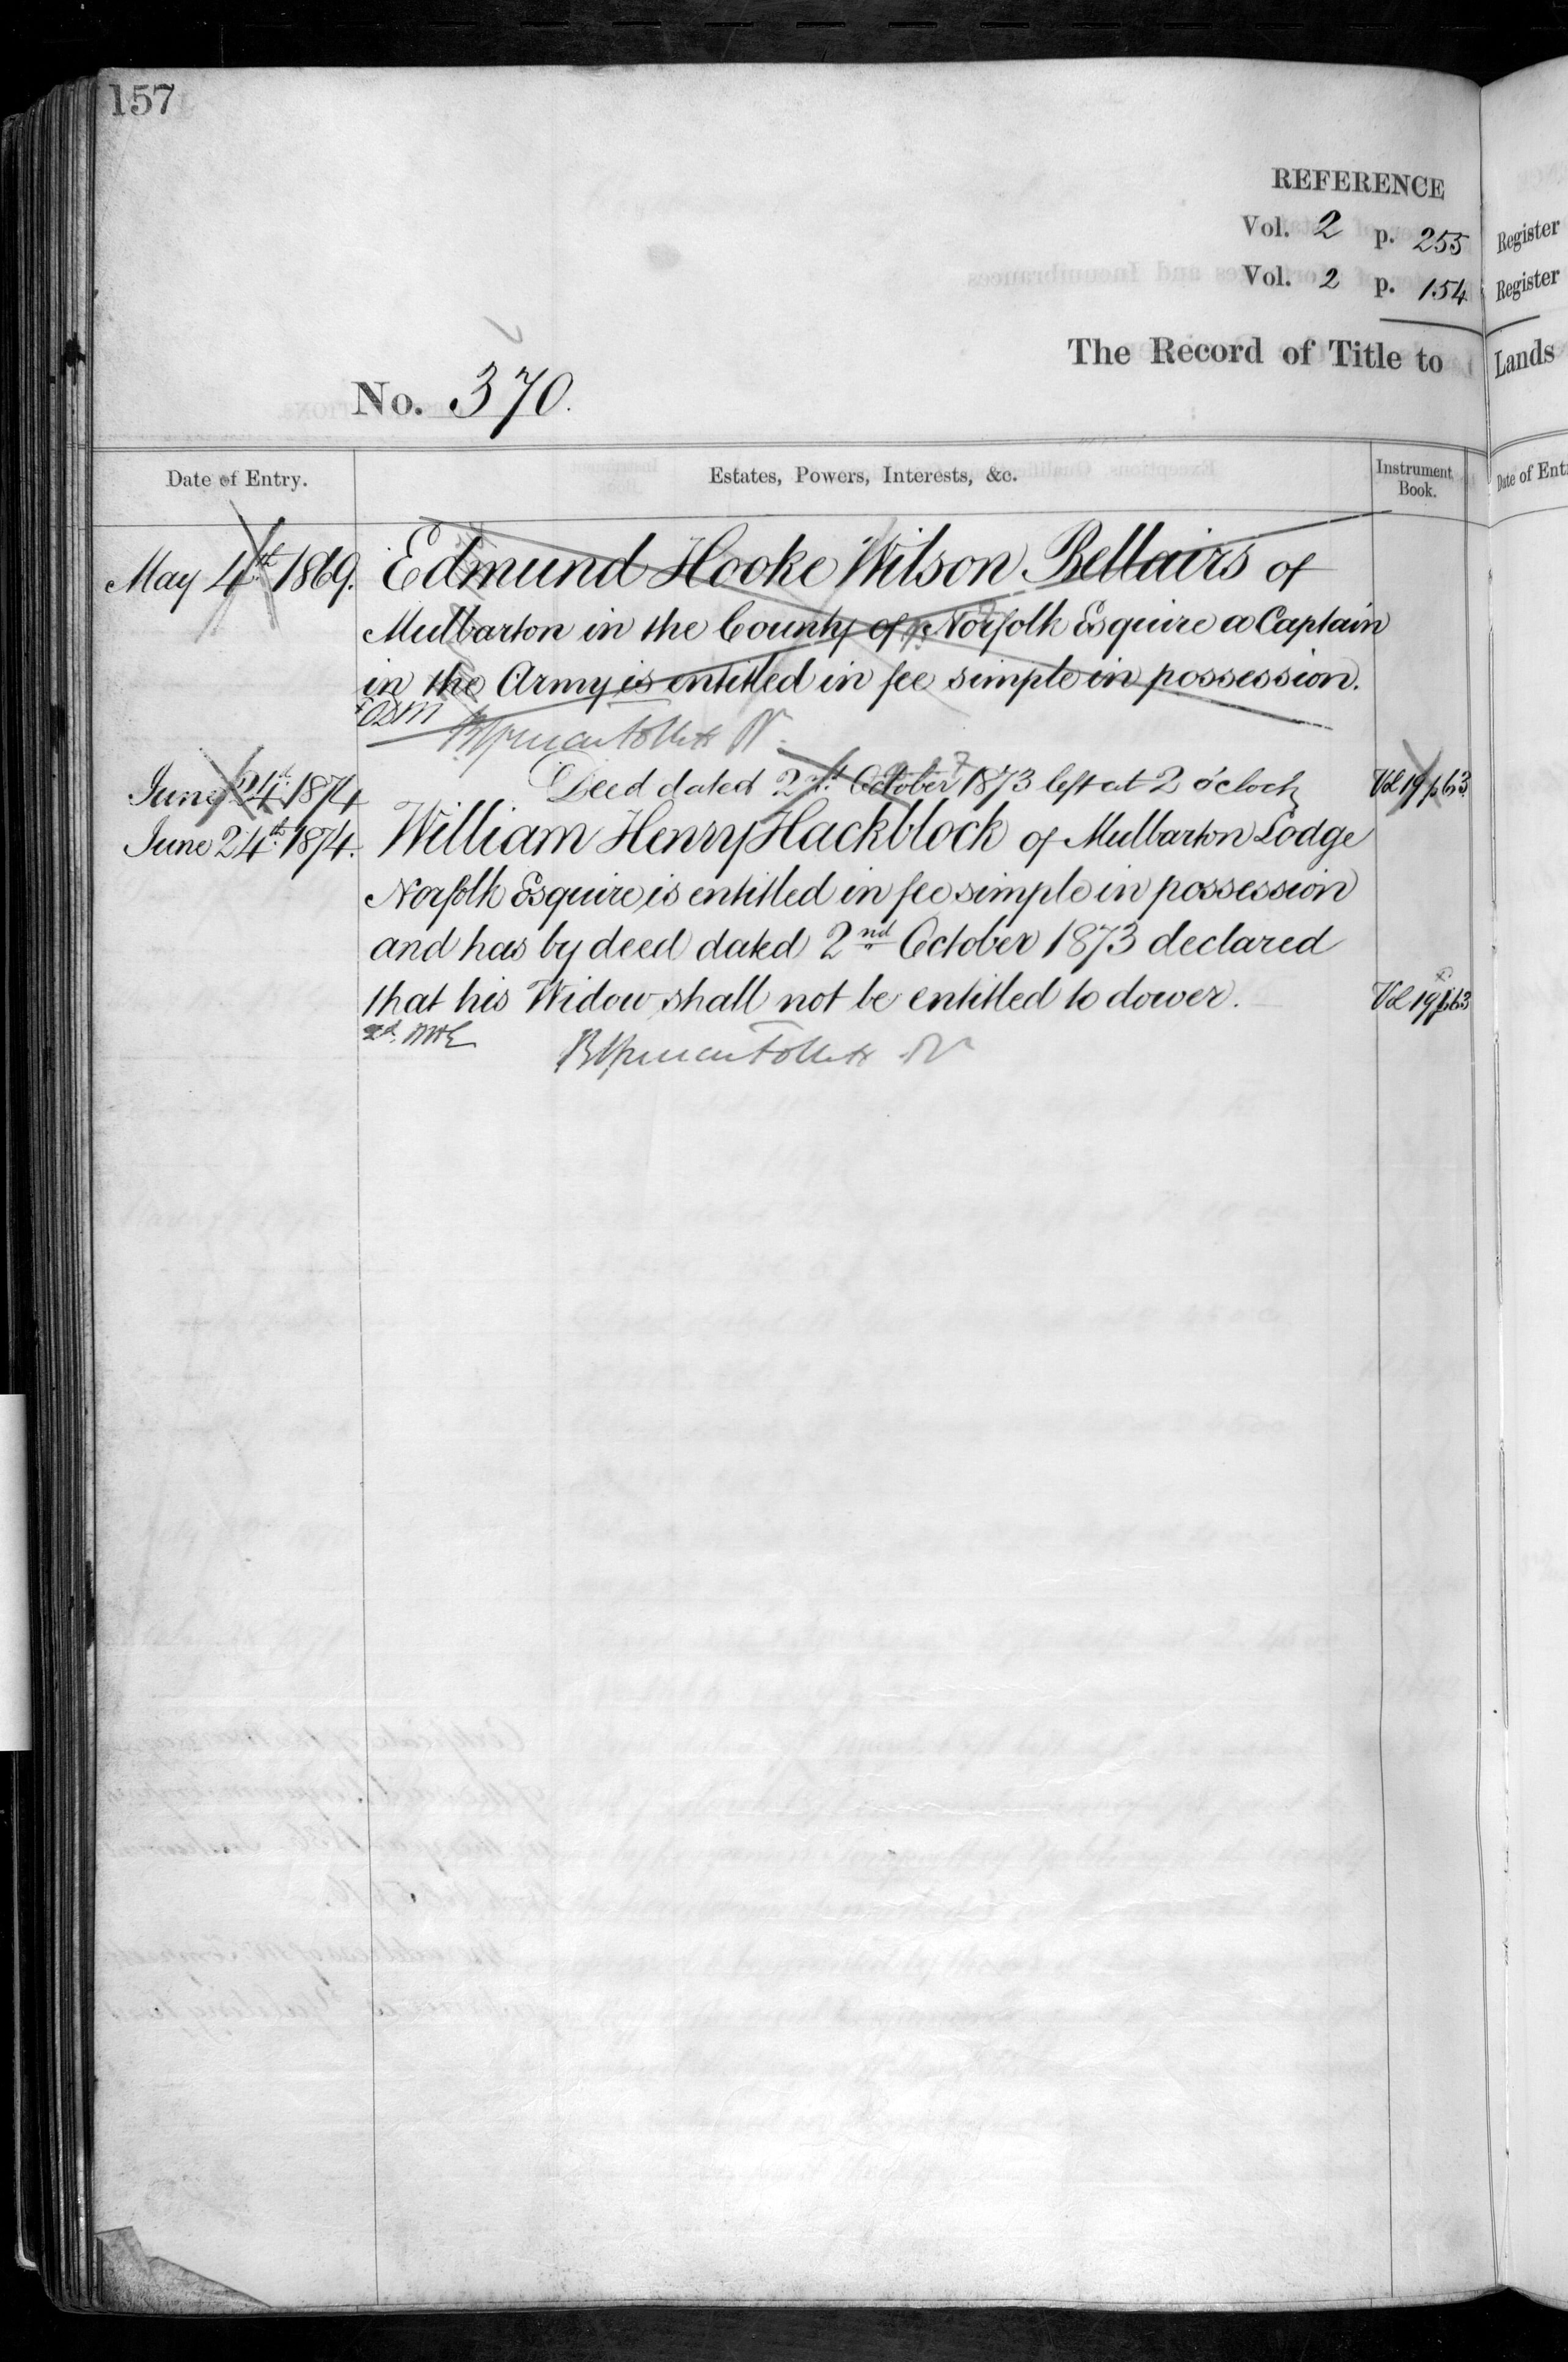 157
REFERENCE
Vol. 2 p. 255
Vol. 2 p. 154
Register
Register
The Record of Title to
Lands
No. 370.
Date of Entry.
Estates, Powers, Interests, &c.
Instrument Book.
Date of Ent
May 4th 1869. Edmund Hooke Wilson Bellairs of
Mulbarton in the County of Norfolk Esquire a Captain
in the Army is entitled in fee simple in possession.
June 24th 1874 Deed dated 2nd October 1873 left at 2 o'clock Vol 19 p 63
June 24th 1874. William Henry Hackblock of Mulbarton Lodge
Norfolk Esquire is entitled in fee simple in possession
and has by deed dated 2nd October 1873 declared
that his Widow shall not be entitled to dower. Vol 19 p 63